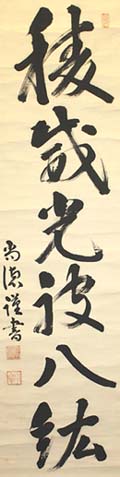 稜威光被八紘
尚德謹書